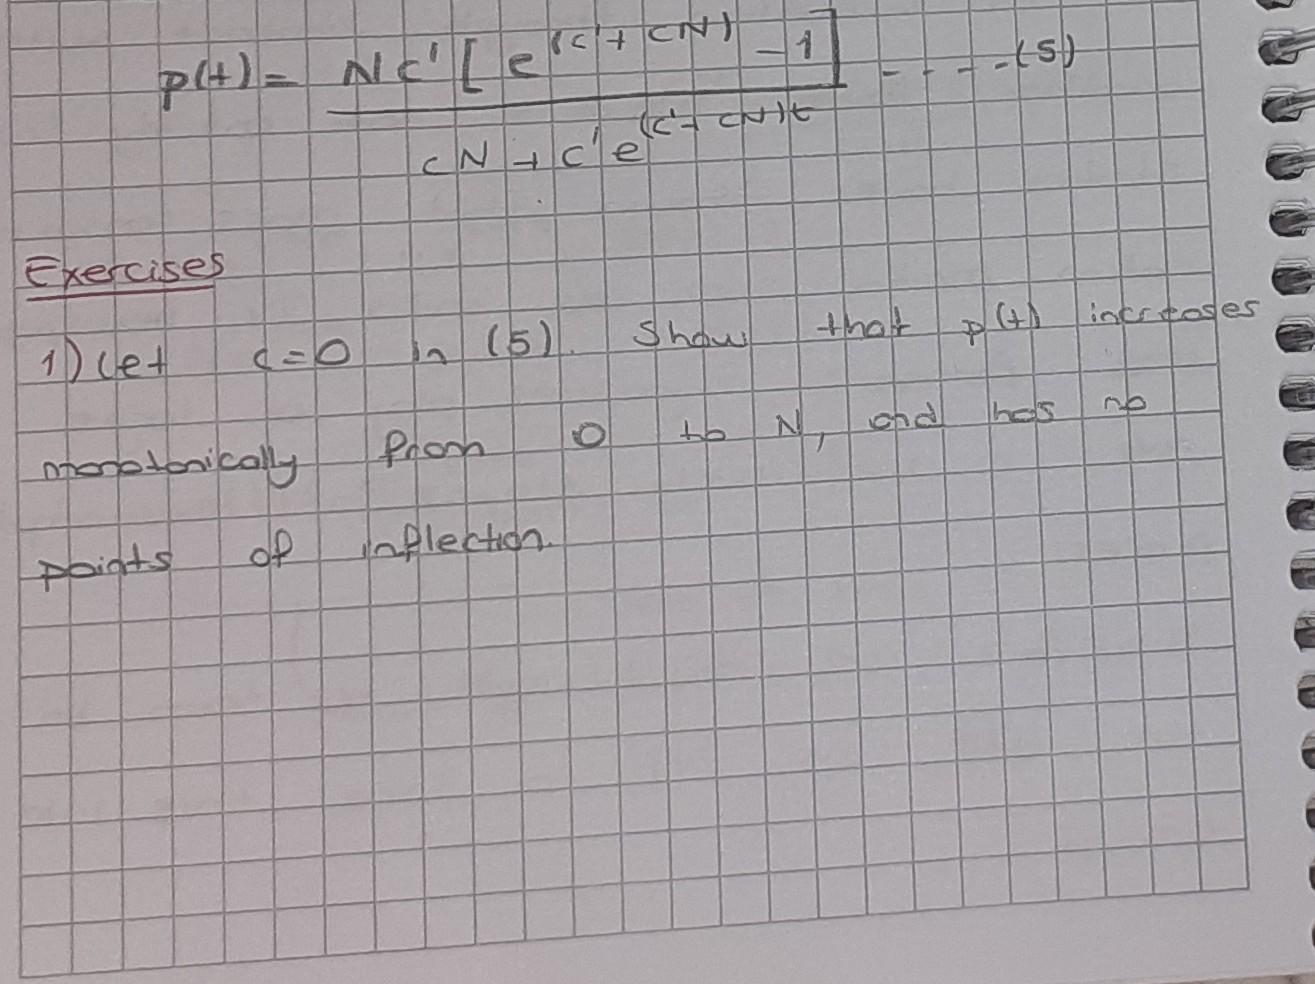 p(t) = Nc' [ e^(c' + cN) - 1 ] - - - - (5)
cN + c' e^(c' + cN)t
Exercises
1) Let c = 0 in (5). Show that p(t) increases
monotonically from 0 to N, and has no
points of inflection.